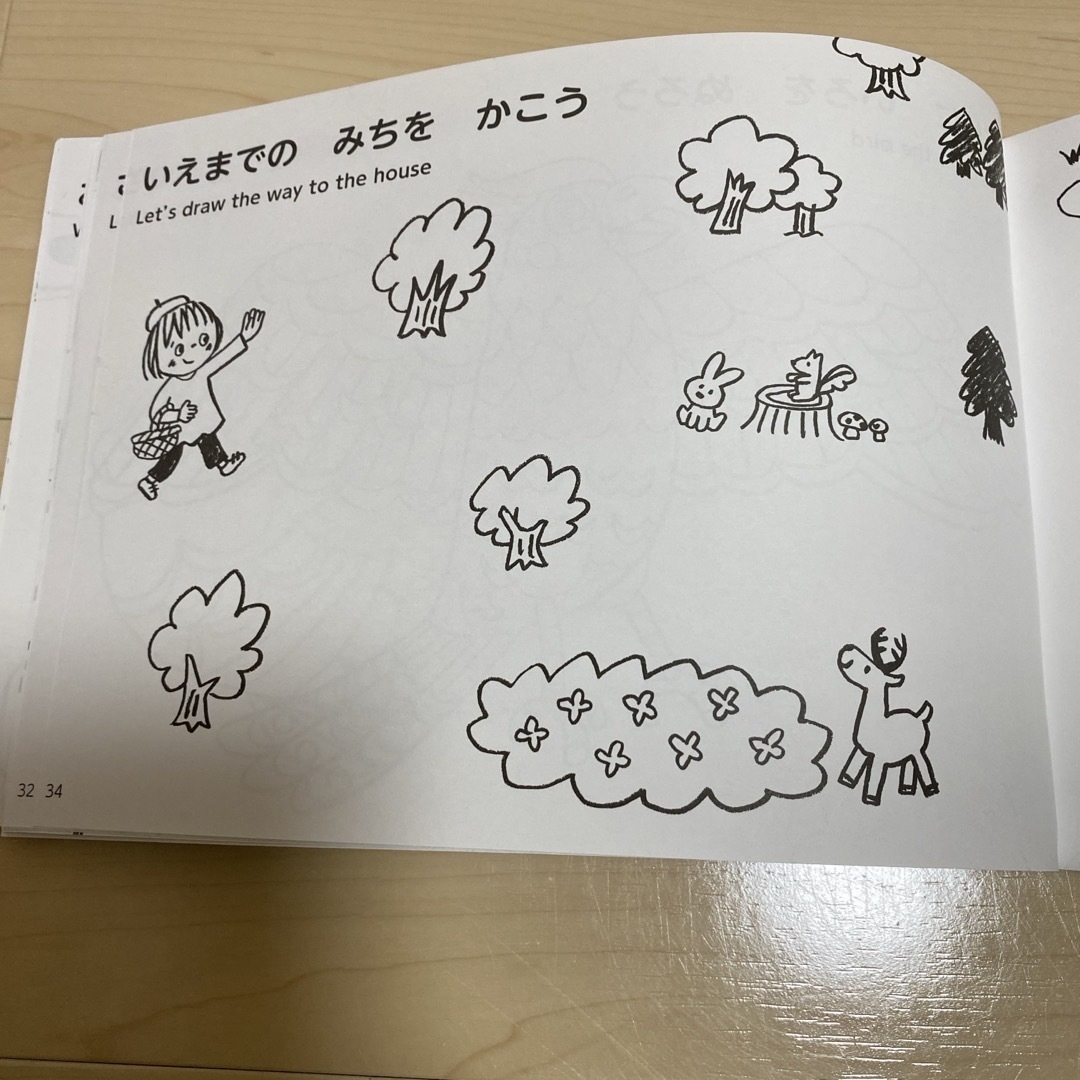 いえまでの みちを かこう
Let's draw the way to the house
32 34